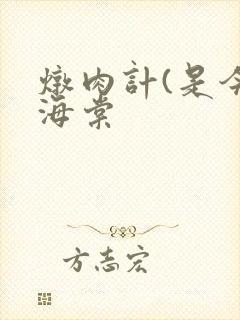 燉肉計(是今
海棠
方志宏